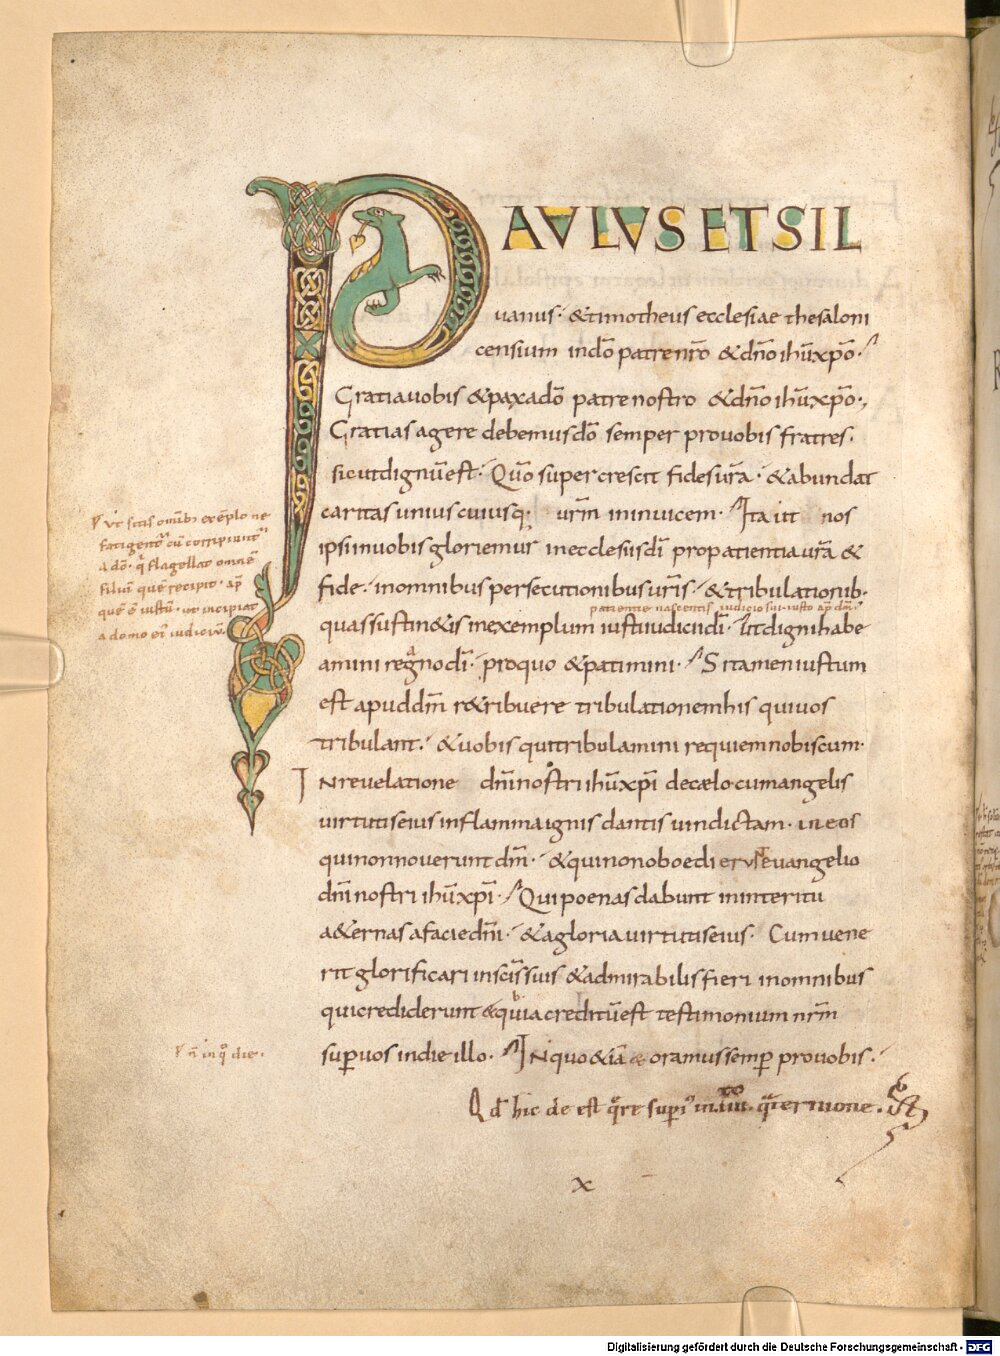 PAVLVS ET SIL
uanus · & timotheus ecclesiae thesaloni
censium in dō patre nr̄o & dn̄o ihū xp̄o ·
Gratia uobis & pax a dō patre nostro & dn̄o ihū xp̄o ·
Gratias agere debemus dō semper pro uobis fratres ·
sicut dignū est · Qm̄ supercrescit fides ur̄a · & abundat
caritas unius cuiusq· urm̄ in inuicem · Ita ut nos
ipsi in uobis gloriemur in ecclesiis dī pro patientia ur̄a &
fide · in omnibus persecutionibus ur̄is · & tribulationib·
patientie nascentis iudicio sui iusto ap dm̄
quas sustin&is in exemplum iusti iudicii dī · Ut digni habe
amini regno dī · pro quo & patimini · Si tamen iustum
est apud dm̄ r&ribuere tribulationem his qui uos
tribulant · & uobis qui tribulamini requiem nobiscum ·
IN reuelatione dn̄i nostri ihū xp̄i de cælo cum angelis
uirtutis eius in flamma ignis dantis uindictam · in eos
qui non nouerunt dm̄ · & qui non oboediervnt euangelio
dn̄i nostri ihū xp̄i · Qui poenas dabunt in interitu
a&ernas a facie dn̄i · & a gloria uirtutis eius · Cum uene
rit glorificari in scīs suis & admirabilis fieri in omnibus
qui crediderunt & quia creditū est testimonium nr̄m
sup uos in die illo · IN quo &iā oramus semp pro uobis ·
Vt scitis omib; exēplo ne
fatigent cū corripiunt
a dō · q flagellat omnē
filiū quē recipit · ap
quē ē iustū · ut incipiat
a domo ei iudiciū ·
n̄ in q die ·
Qd hic de est qre supi in · qternione ·
x
Digitalisierung gefördert durch die Deutsche Forschungsgemeinschaft - DFG